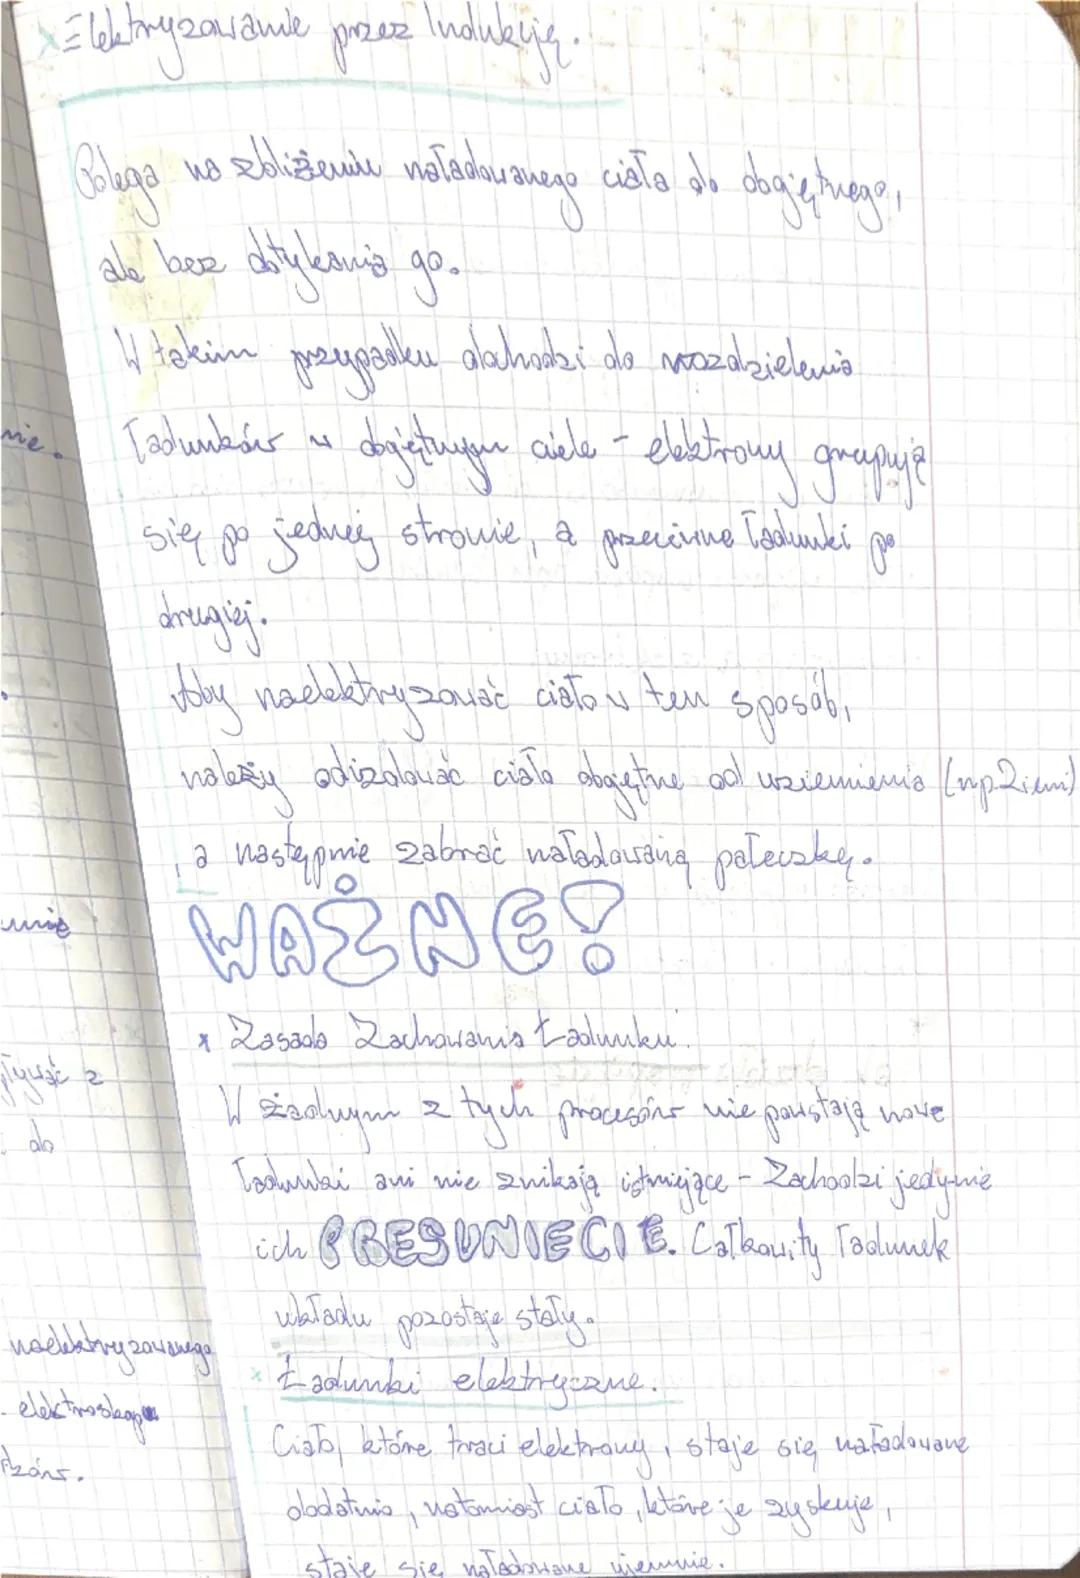 Elektryzowanie przez Indukcję.
Polega na zbliżeniu naładowanego ciała do obojętnego,
ale bez dotykania go.
W takim przypadku dochodzi do rozdzielenia
nie.
ładunków w obojętnym ciele - elektrony grupują
się po jednej stronie, a przeciwne ładunki po
drugiej.
Aby naelektryzować ciało w ten sposób,
należy odizolować ciało obojętne od uziemienia (np. Ziemi)
, a następnie zabrać naładowaną pałeczkę.
WAŻNE!
x Zasada Zachowania Ładunku.
W żadnym z tych procesów nie powstają nowe
do
ładunki ani nie znikają istniejące - Zachodzi jedynie
ich PRESUNIECIE. Całkowity ładunek
układu pozostaje stały.
naelektryzowanego
x Ładunki elektryczne.
Ciało, które traci elektrony, staje się naładowane
dodatnio, natomiast ciało, które je zyskuje,
staje się naładowane ujemnie.